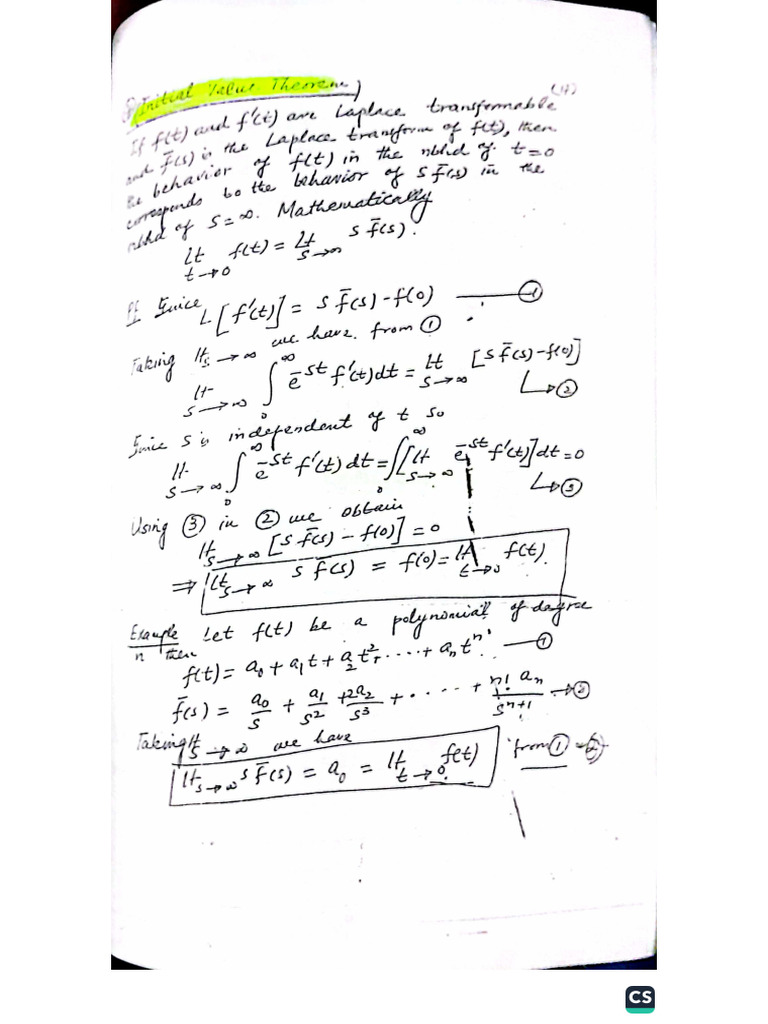 Initial Value Theorem)
If f(t) and f'(t) are Laplace transformable
and f̄(s) is the Laplace transform of f(t), then
the behavior of f(t) in the nbhd of t=0
corresponds to the behavior of s f̄(s) in the
nbhd of s=∞. Mathematically
lt t→0 f(t) = lt s→∞ s f̄(s).
Pf Since L[f'(t)] = s f̄(s) - f(0) ——— ①
Taking lt s→∞ we have from ①
lt s→∞ ∫₀^∞ e^-st f'(t) dt = lt s→∞ [s f̄(s) - f(0)] ↳②
Since s is independent of t so
lt s→∞ ∫₀^∞ e^-st f'(t) dt = ∫₀^∞ [lt s→∞ e^-st f'(t)] dt = 0 ↳③
Using ③ in ② we obtain
lt s→∞ [s f̄(s) - f(0)] = 0
⇒ lt s→∞ s f̄(s) = f(0) = lt t→0 f(t).
Example Let f(t) be a polynomial of degree
n then
f(t) = a₀ + a₁t + a₂t² + ..... + aₙtⁿ. — ①
f̄(s) = a₀/s + a₁/s² + 2a₂/s³ + ..... + n! aₙ/s^n+1 → ②
Taking lt s→∞ we have
lt s→∞ s f̄(s) = a₀ = lt t→0 f(t) from ① ②
CS